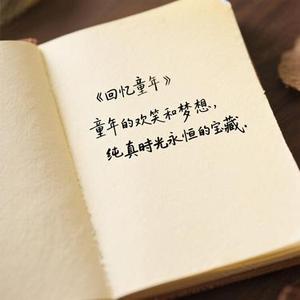 《回忆童年》
童年的欢笑和梦想，
纯真时光永恒的宝藏.